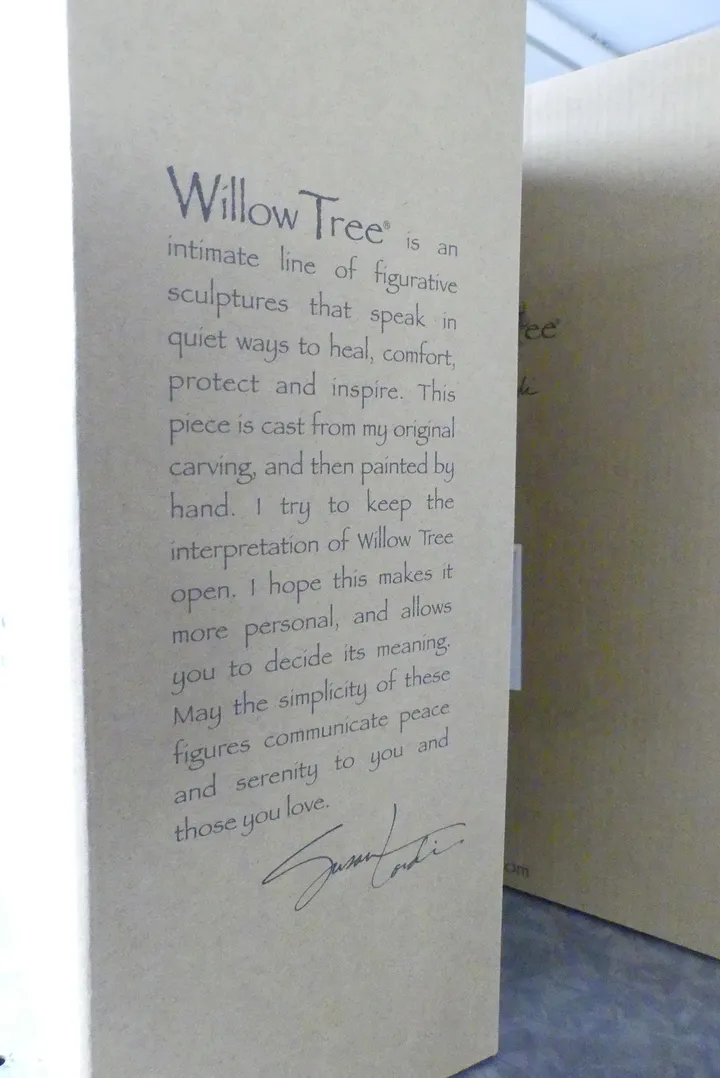 Willow Tree® is an
intimate line of figurative
sculptures that speak in
quiet ways to heal, comfort,
protect and inspire. This
piece is cast from my original
carving, and then painted by
hand. I try to keep the
interpretation of Willow Tree
open. I hope this makes it
more personal, and allows
you to decide its meaning.
May the simplicity of these
figures communicate peace
and serenity to you and
those you love.
Susan Lordi
ee®
di
om